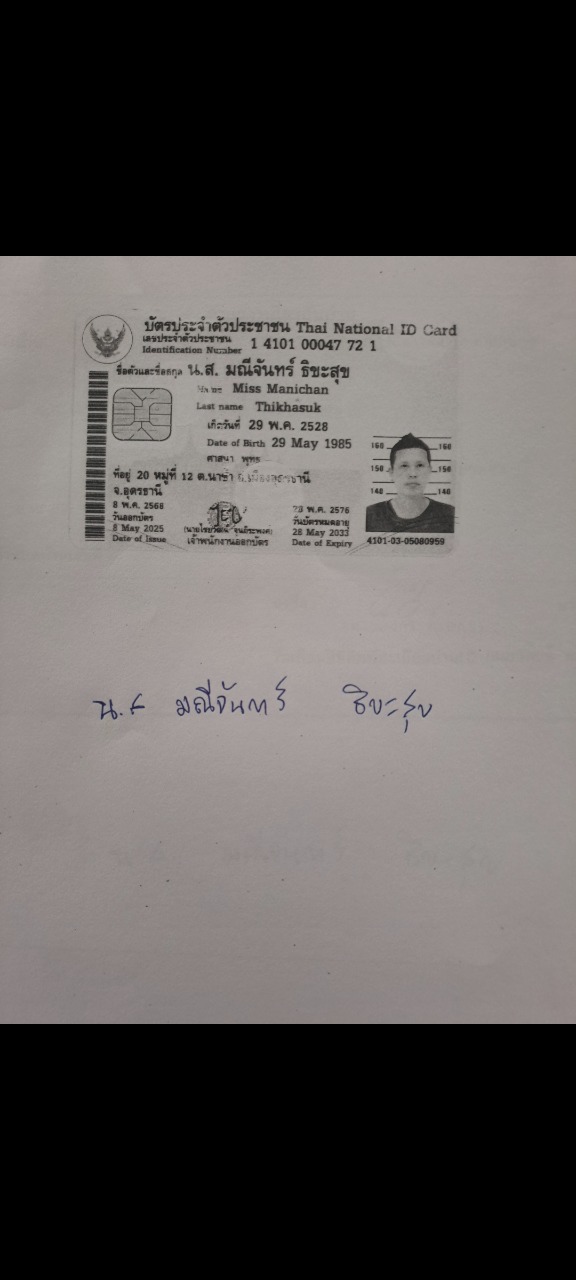 บัตรประจำตัวประชาชน Thai National ID Card
เลขประจำตัวประชาชน
Identification Number 1 4101 00047 72 1
ชื่อตัวและชื่อสกุล น.ส. มณีจันทร์ ธิขะสุข
Name Miss Manichan
Last name Thikhasuk
เกิดวันที่ 29 พ.ค. 2528
Date of Birth 29 May 1985
ศาสนา พุทธ
ที่อยู่ 20 หมู่ที่ 12 ต.นาข่า อ.เมืองอุดรธานี
จ.อุดรธานี
8 พ.ค. 2568
วันออกบัตร
8 May 2025
Date of Issue
เจ้าพนักงานออกบัตร
28 พ.ค. 2576
วันบัตรหมดอายุ
28 May 2033
Date of Expiry
160 160
150 150
140 140
4101-03-05080959
น.ส มณีจันทร์ ธิขะสุข